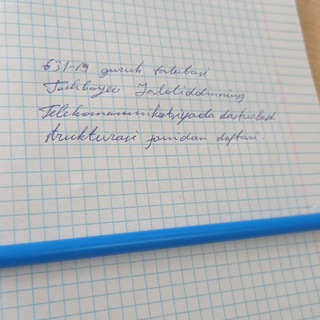 631-19 guruh talabasi
Toshboyev Jaloliddinning
Telekommunikatsiyada dasturlash
strukturasi fanidan daftari.